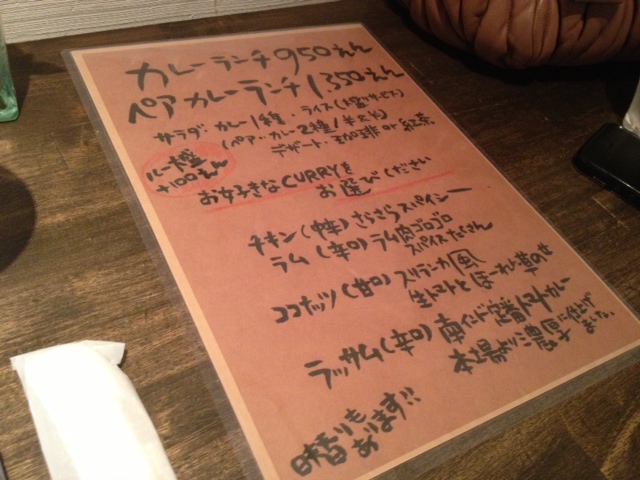 カレーランチ 950えん
ペアカレーランチ 1,350えん
サラダ・カレー1種・ライス(大盛りサービス)
(ペア・カレー2種/半々)
デザート・珈琲or紅茶
ルー大盛
+100えん
お好きなCURRYを
お選びください
チキン(中辛)さらさらスパイシー
ラム(辛口)ラム肉ゴロゴロ
スパイスたくさん
ココナッツ(甘口)スリランカ風
生トマトとほーれん草のせ
ラッサム(辛口)南インド定番トマトカレー
本場より濃厚に仕上げ
ました。
日替りも
あります!!